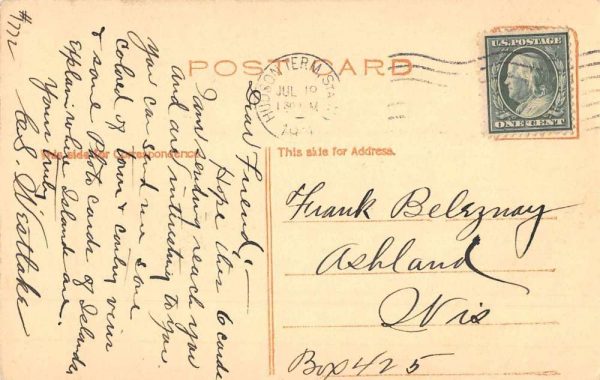 POST CARD
This side for Correspondence.
This side for Address.
U.S. POSTAGE
ONE CENT
HUDSON TERM. STA.
JUL 19
#772
Dear Friend;—
Hope this 6 cards
I am sending reach you
and are interesting to you.
You can send me some
colored of town &
& some Photo cards of Islands,
Explain where Islands are.
Yours truly
C.S. Westlake
Frank Beleznay
Ashland
Wis
Box 425